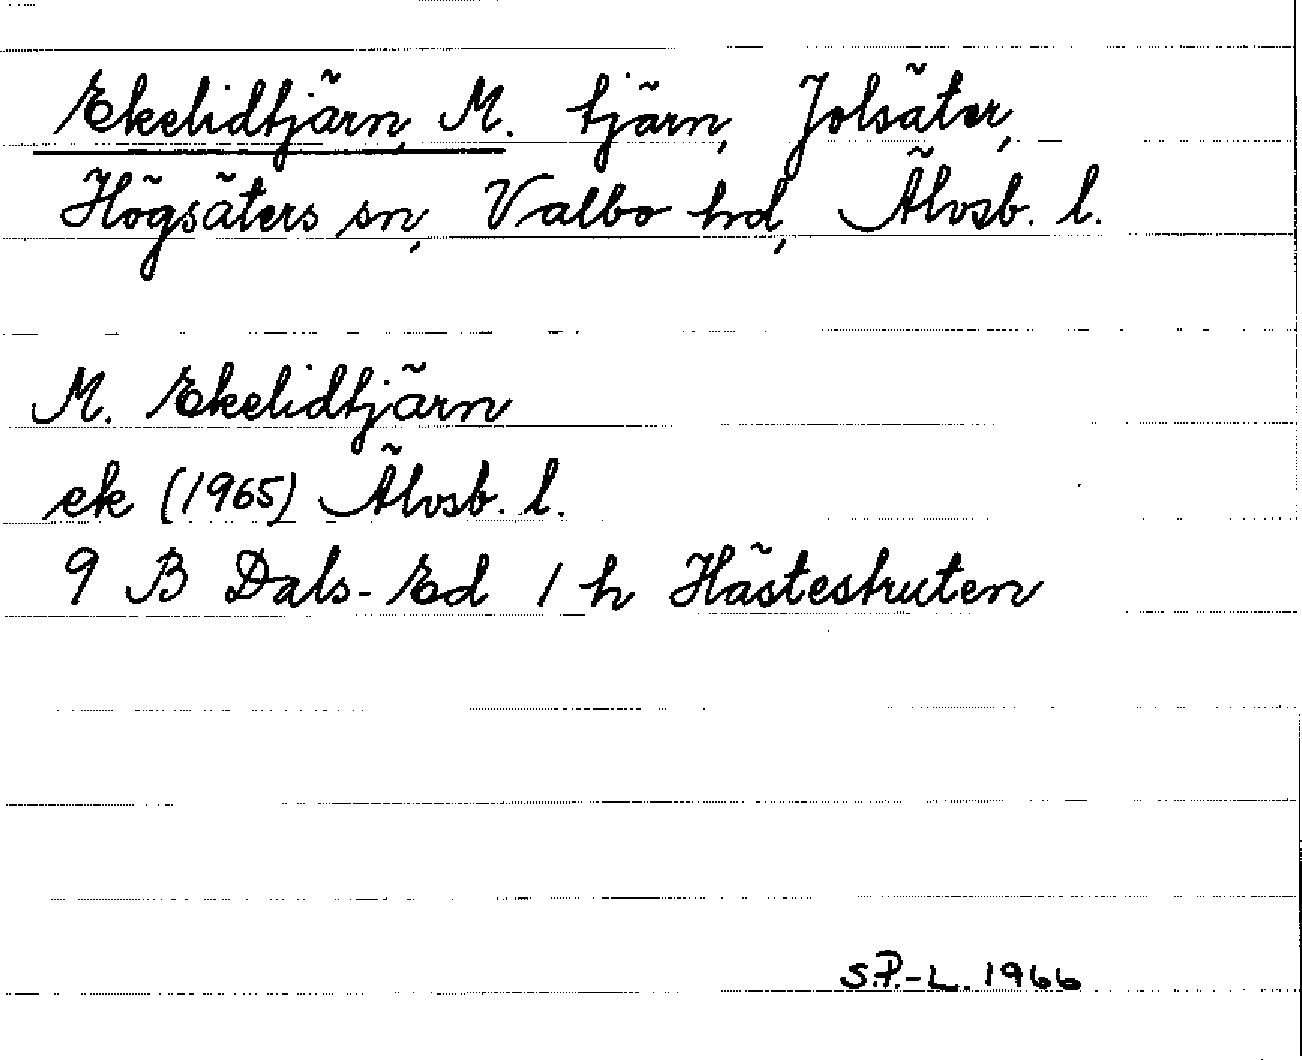 Ekelidtjärn, M. tjärn, Jolsäter,
Högsäters sn, Valbo hd, Älvsb. l.
M. Ekelidtjärn
ek (1965) Älvsb. l.
9 B Dals-Ed 1 h Hästestruten
S.P.-L. 1966